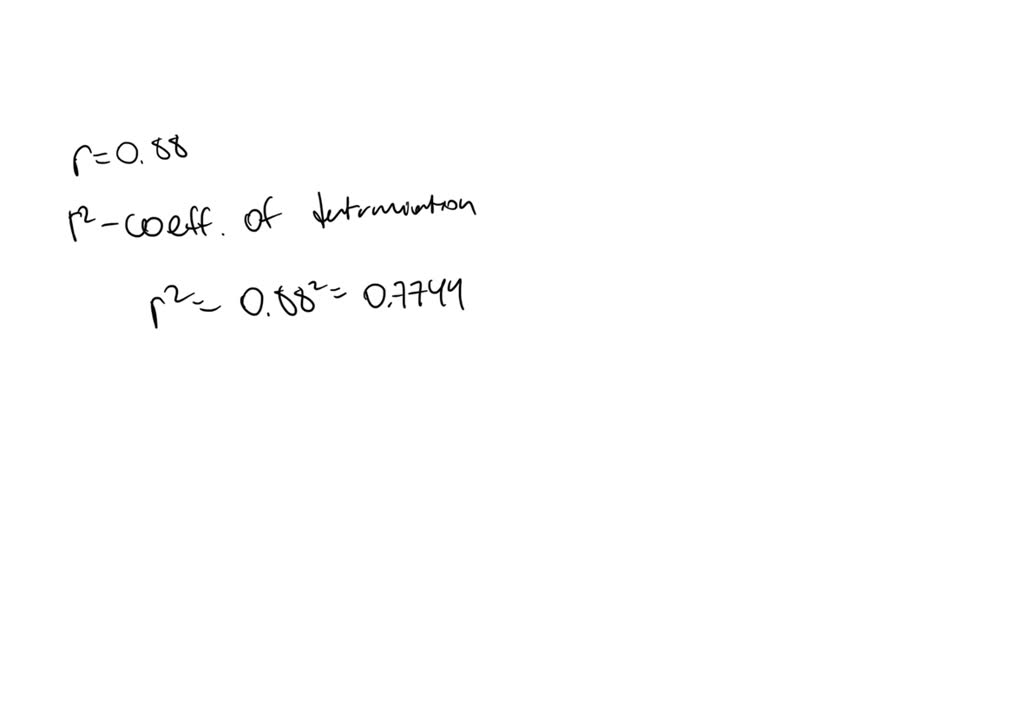 r=0.88
r²-coeff. of determination
r²= 0.88²= 0.7744